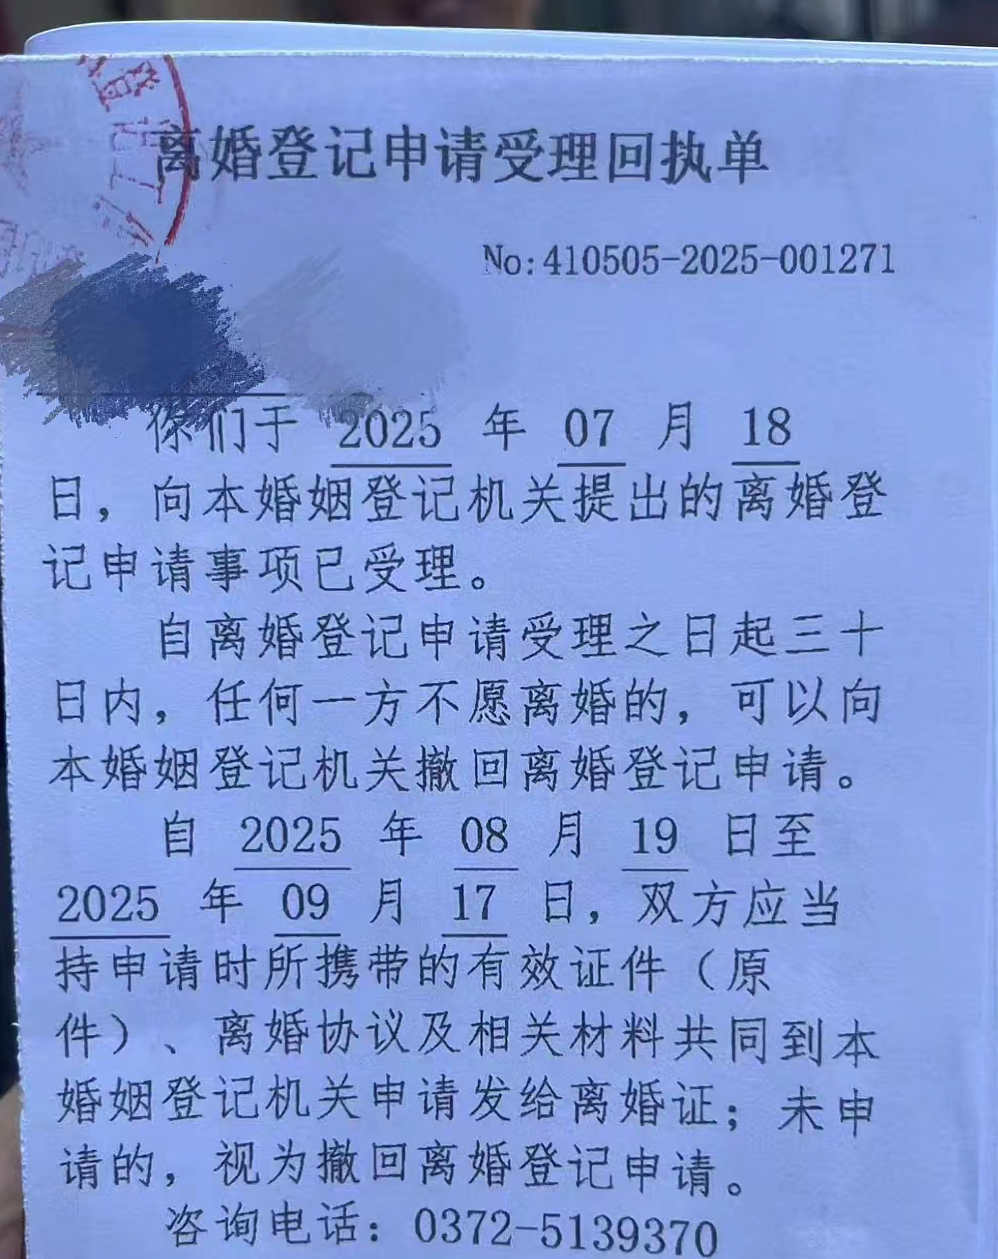 离婚登记申请受理回执单
No:410505-2025-001271
你们于 2025 年 07 月 18
日，向本婚姻登记机关提出的离婚登
记申请事项已受理。
自离婚登记申请受理之日起三十
日内，任何一方不愿离婚的，可以向
本婚姻登记机关撤回离婚登记申请。
自 2025 年 08 月 19 日至
2025 年 09 月 17 日，双方应当
持申请时所携带的有效证件（原
件）、离婚协议及相关材料共同到本
婚姻登记机关申请发给离婚证；未申
请的，视为撤回离婚登记申请。
咨询电话：0372-5139370